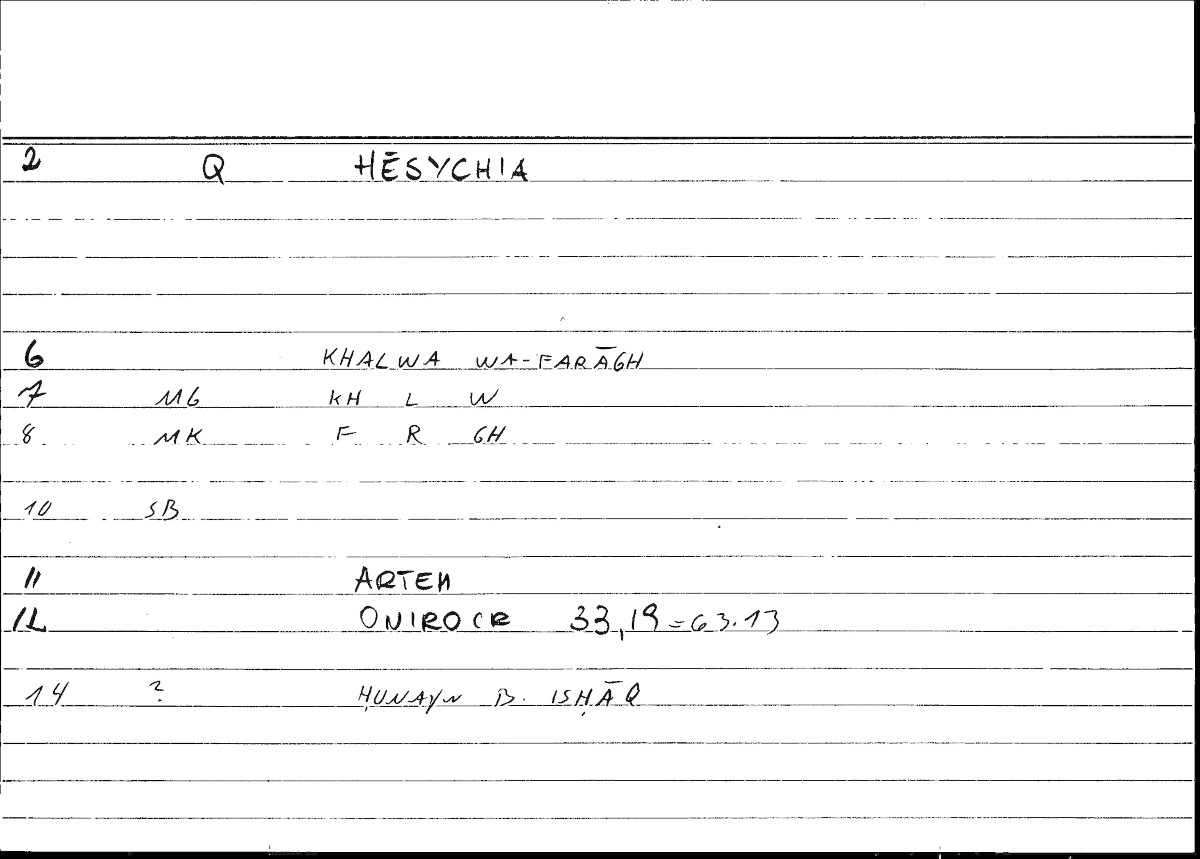 2 Q HĒSYCHIA
6 KHALWA WA-FARĀGH
7 MG KH L W
8 MK F R GH
10 SB
11 ARTEM
12 ONIROCR 33,19=63.13
14 ? ḤUNAYN B. ISḤĀQ